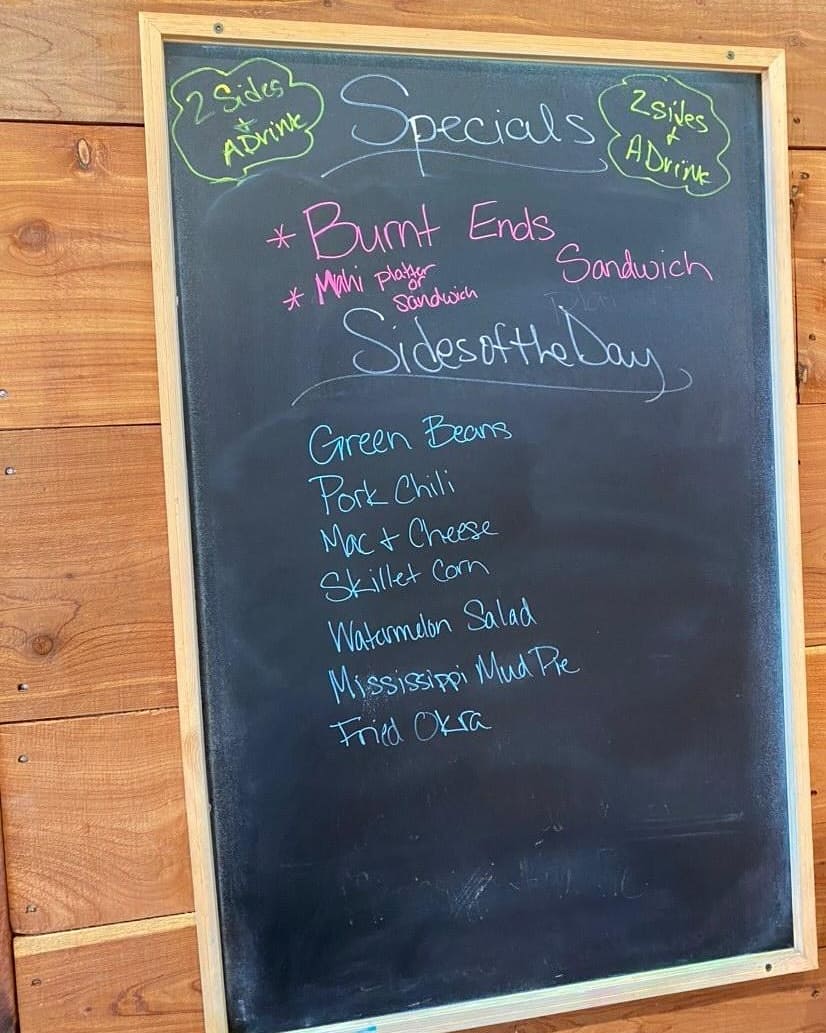 2 Sides
+
A Drink
Specials
2 sides
+
A Drink
* Burnt Ends
Sandwich
* Mahi platter
or
sandwich
Sides of the Day
Green Beans
Pork Chili
Mac + Cheese
Skillet Corn
Watermelon Salad
Mississippi Mud Pie
Fried Okra